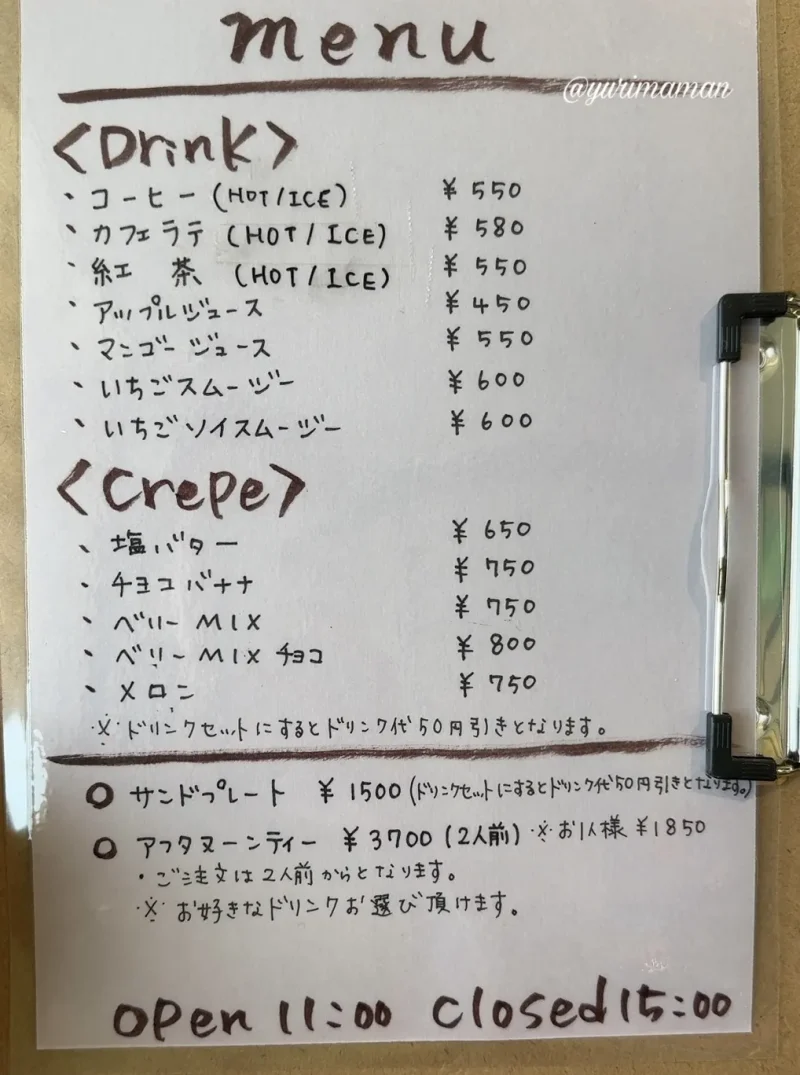 menu
@yurimaman
<Drink>
・コーヒー(HOT/ICE) ¥550
・カフェラテ(HOT/ICE) ¥580
・紅 茶 (HOT/ICE) ¥550
・アップルジュース ¥450
・マンゴージュース ¥550
・いちごスムージー ¥600
・いちごソイスムージー ¥600
<Crepe>
・塩バター ¥650
・チョコバナナ ¥750
・ベリーMIX ¥750
・ベリーMIXチョコ ¥800
・メロン ¥750
※ドリンクセットにするとドリンク代50円引きとなります。
○ サンドプレート ¥1500(ドリンクセットにするとドリンク代50円引きとなります。)
○ アフタヌーンティー ¥3700(2人前)※お1人様 ¥1850
・ご注文は2人前からとなります。
※お好きなドリンクお選び頂けます。
open 11:00 closed 15:00